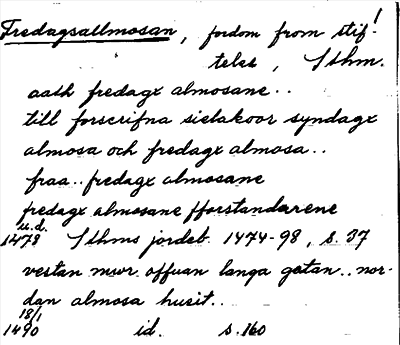 Fredagsallmosan, fordom from stif-
telse, Sthm.
aath fredagx almosane..
till forscrifna sielakoor syndagx
almosa och fredagx almosa..
fraa.. fredagx almosane
fredagx almosane fforstandarene
u.d.
1478 Sthms jordeb. 1474-98, s. 37
vestan mwr offuan langa gatan.. nor-
dan almosa husit..
18/1
1490 id. s. 160